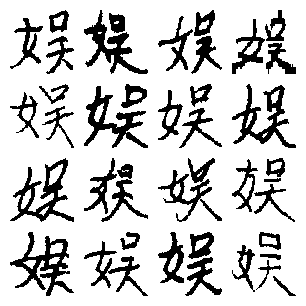 娱娱娱娱
娱娱娱娱
娱娱娱娱
娱娱娱娱